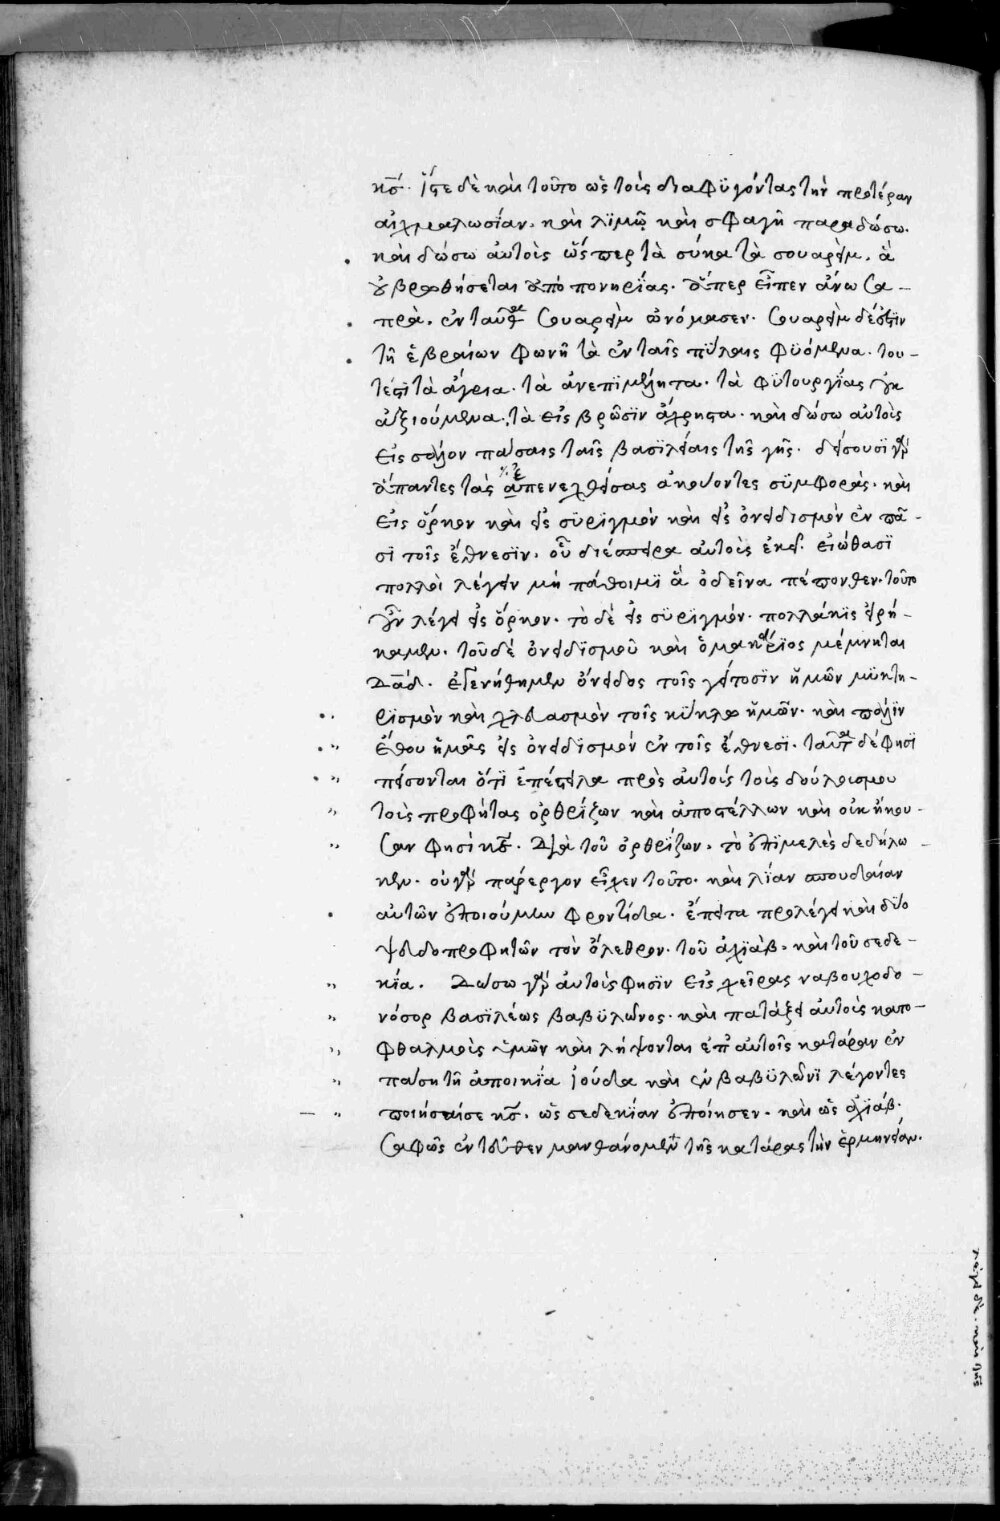 κ̅ς̅. ἴστε δὲ καὶ τοῦτο ὡς τοὺς διαφϋγόντας τὴν προτέραν
αἰχμαλωσίαν. καὶ λϊμῷ καὶ σφαγῇ παραδώσω.
καὶ δώσω αὐτοὺς ὥσπερ τὰ σύκα τὰ σουαρεὶμ. ἃ
οὐ βρωθήσεται ὑπὸ πονηρίας. ἅπερ εἶπεν ἄνω σα-
πρὰ. ἐνταῦθα σουαρεὶμ ὠνόμασεν. σουαρεὶμ δέ ἐστϊν
τῇ ἑβραίων φωνῇ τὰ ἐν ταῖς πύλαις φϋόμενα. του-
τέστϊ τὰ ἄγρια. τὰ ἀνεπϊμέλητα. τὰ φϋτουργίας οὐκ
ἀξιούμενα. τὰ εἰς βρῶσϊν ἄχρηστα. καὶ δώσω αὐτοὺς
εἰς σάλον πάσαις ταῖς βασϊλείαις τῆς γῆς. δείσουσϊ γὰρ
ἅπαντες τὰς ἀπενεχθείσας ἀκούοντες σϋμφορὰς. καὶ
εἰς ὅρκον καὶ εἰς σϋρϊγμὸν καὶ εἰς ὀνειδισμὸν ἐν πᾶ-
σϊ τοῖς ἔθνεσϊν. οὗ διέσπειρα αὐτοὺς ἐκεῖ. εἰώθασϊ
πολλοὶ λέγειν μὴ πάθοιμϊ ἃ ὁ δεῖνα πέπονθεν. τοῦτο
οὖν λέγει εἰς ὅρκον. τὸ δὲ εἰς σϋρϊγμόν. πολλάκϊς εἰρή-
καμεν. τοῦ δὲ ὀνειδϊσμοῦ καὶ ὁ μακάρϊος μέμνηται
Δα̅δ. ἐγενήθημεν ὄνειδος τοῖς γείτοσϊν ἡμῶν μϋκτη-
ρϊσμὸν καὶ χλευασμὸν τοῖς κύκλῳ ἡμῶν. καὶ πάλϊν
ἔθου ἡμᾶς εἰς ὀνειδϊσμὸν ἐν τοῖς ἔθνεσϊ. ταῦτα δέ φησϊ
πείσονται ὅτϊ ἐπέστειλα πρὸς αὐτοὺς τοὺς δούλους μου
τοὺς προφήτας ὀρθρϊζων καὶ ἀποστέλλων καὶ οὐκ ἤκου-
σαν φησὶ κ̅ς̅. Διὰ τοῦ ὀρθρϊζων. τὸ ἐπϊμελὲς δεδήλω-
κεν. οὐ γὰρ πάρεργον εἶχεν τοῦτο. καὶ λίαν σπουδαίαν
αὐτῶν ἐποιούμην φροντίδα. ἔπειτα προλέγει καὶ δύο
ψευδοπροφητῶν τὸν ὄλεθρον. τοῦ ἀχϊὰβ. καὶ τοῦ σεδε-
κία. Δώσω γὰρ αὐτοὺς φησϊν εἰς χεῖρας ναβουχοδο-
νόσορ βασϊλέως βαβϋλῶνος. καὶ πατάξει αὐτοὺς κατο-
φθαλμοὺς ὑμῶν καὶ λήψονται ἐπ' αὐτοῖς κατάραν ἐν
πάσῃ τῇ ἀποικίᾳ ἰούδα καὶ ἐν βαβϋλῶνϊ λέγοντες
ποιήσαι σε κ̅ς̅. ὡς σεδεκίαν ἐποίησεν. καὶ ὡς ἀχϊάβ.
σαφῶς ἐντεῦθεν μανθάνομεν τῆς κατάρας τὴν ἑρμηνείαν.